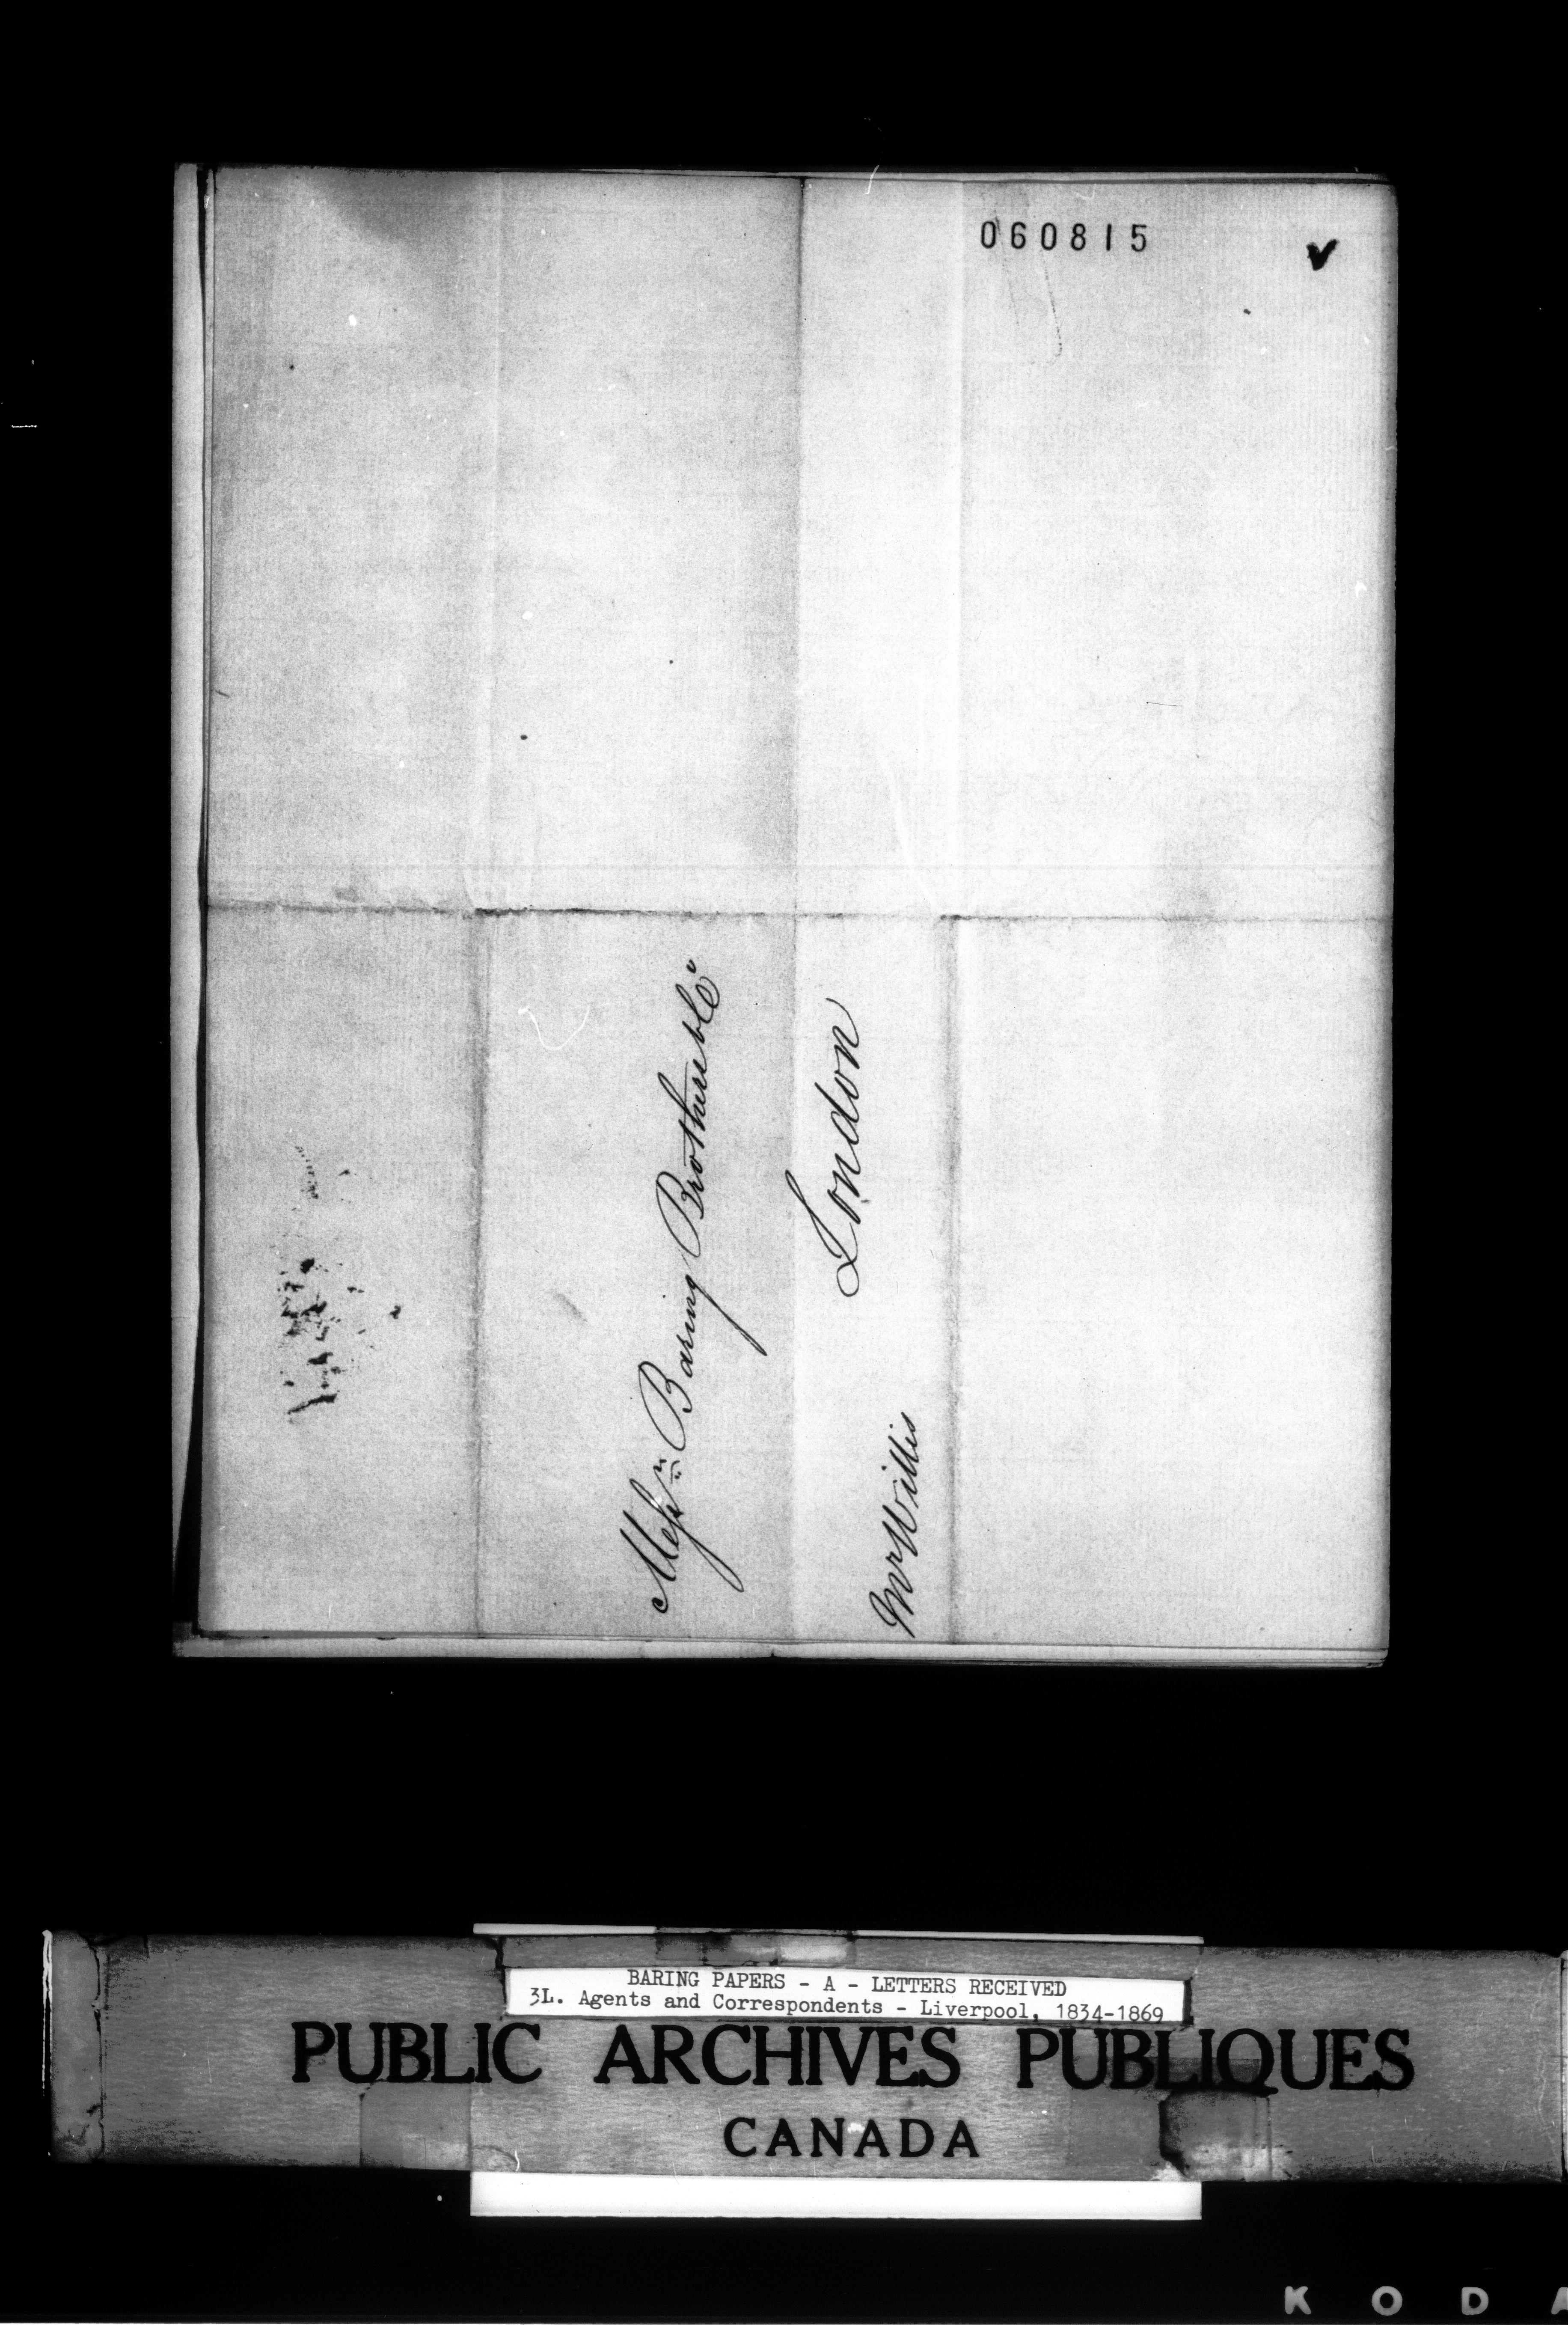 060815
✓
Messrs Baring Brothers & Co
London
Mr Willis
BARING PAPERS - A - LETTERS RECEIVED
3L. Agents and Correspondents - Liverpool, 1834-1869
PUBLIC ARCHIVES PUBLIQUES
CANADA
KODA